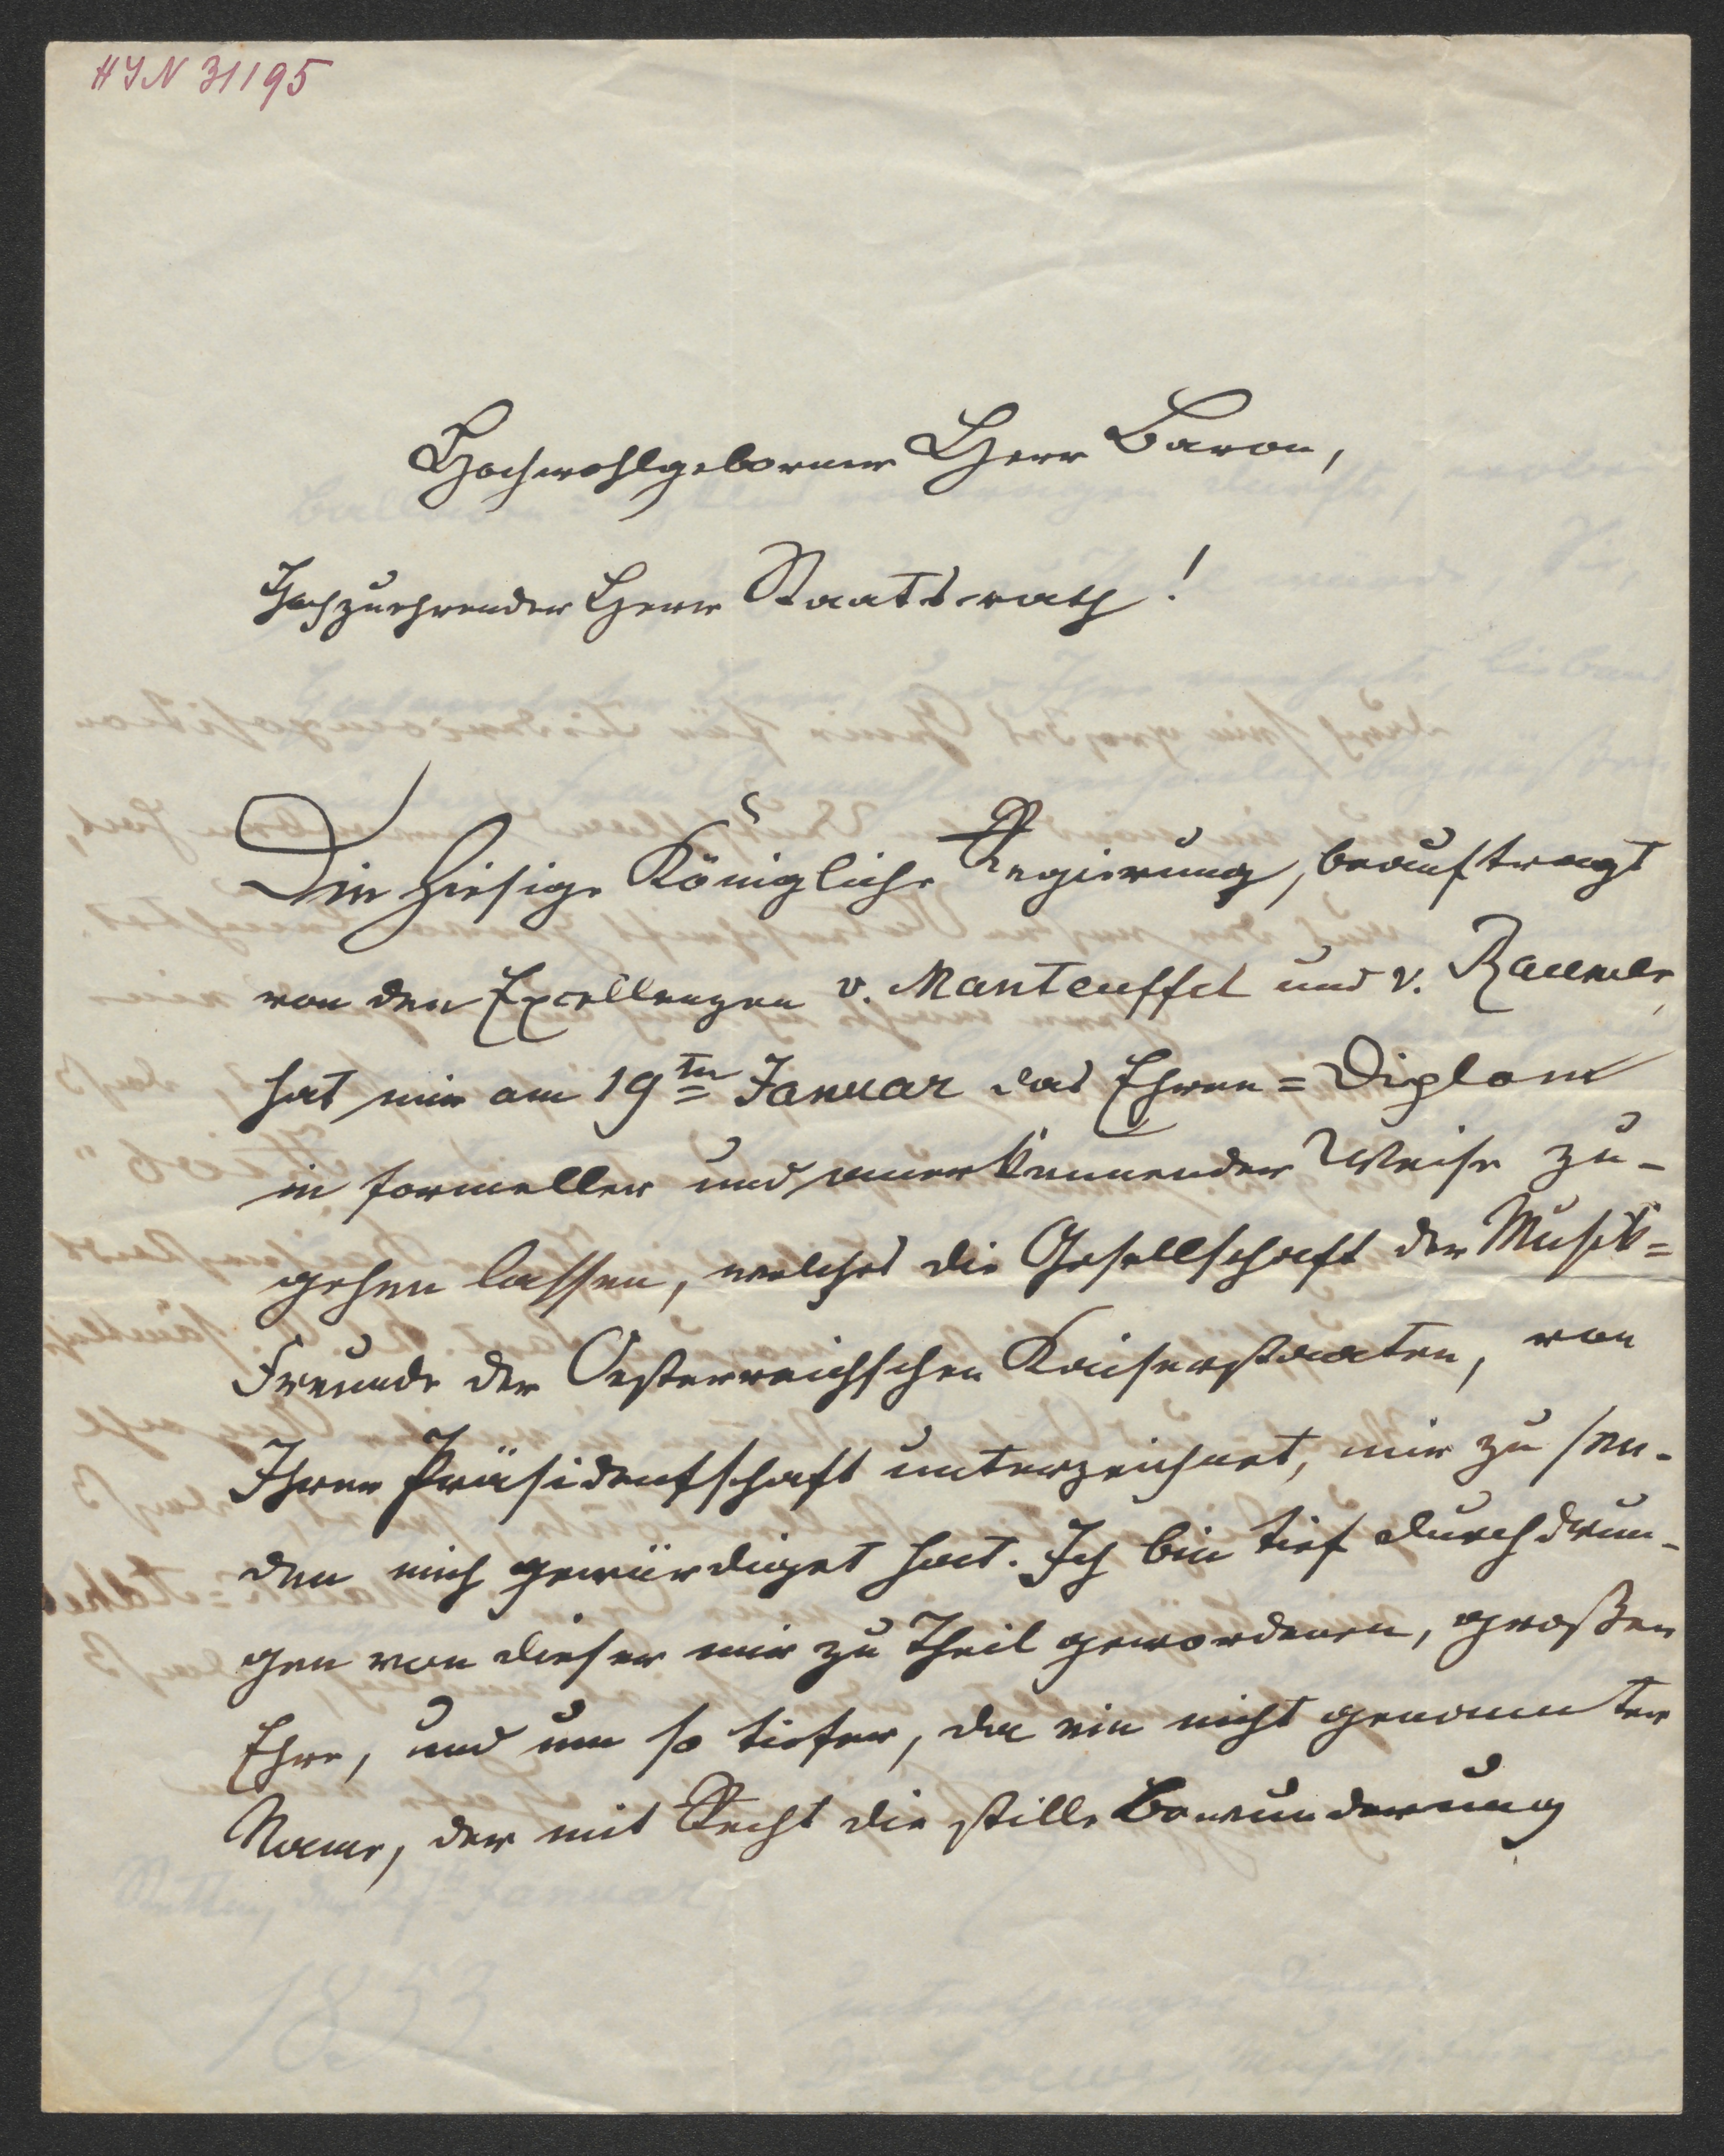 HJN 31195
Hochwohlgeborner Herr Baron,
Hochzuehrender Herr Staatsrath!
Die hiesige Königliche Regierung, beauftragt
von den Excellenzen v. Manteuffel und v. Raumer,
hat mir am 19ten Januar das Ehren=Diplom
in formeller und anerkennender Weise zu-
gehen lassen, welches die Gesellschaft der Musik=
Freunde der Oesterreichschen Kaiserstaaten, von
Ihrer Präsidentschaft unterzeichnet, mir zu sen-
den mich gewürdiget hat. Ich bin tief durchdrun-
gen von dieser mir zu Theil gewordenen, großen
Ehre, und um so tiefer, da ein nicht genannter
Name, der mit Recht die stille Bewunderung